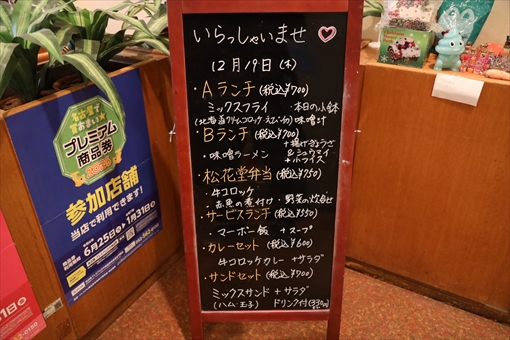 いらっしゃいませ
12月19日(木)
・Aランチ(税込¥700)
ミックスフライ ・本日の小鉢
(北海道クリームコロッケ・えびフライ) 味噌汁
・Bランチ(税込¥700)
・味噌ラーメン
+揚げぎょうざ
&シュウマイ
+ホワイス
・松花堂弁当(税込¥750)
・牛コロッケ
・赤魚の煮付け ・野菜の炊合せ
・サービスランチ(税込¥550)
・マーボー飯 +スープ
・カレーセット(税込¥600)
牛コロッケカレー +サラダ
・サンドセット(税込¥700)
ミックスサンド + サラダ
(ハム・玉子) ドリンク付
名古屋で
お買い物
プレミアム
商品券
参加店舗
当店で利用できます!
6月25日 1月31日